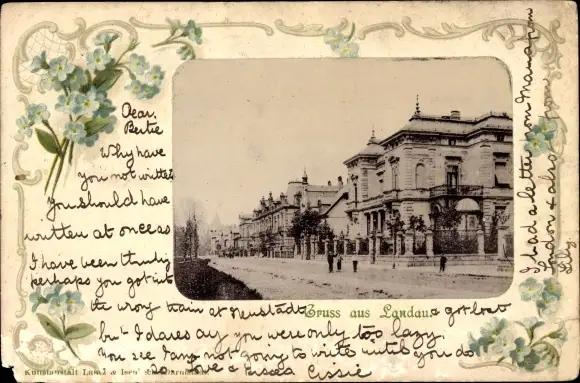 Dear
Bertie
Why have
you not written
you should have
written at once as
I have been thinking
perhaps you got into
the wrong train at Neustadt & got lost
Gruss aus Landau
but I dare say you were only too lazy.
You see I am not going to write until you do
so Love & kisses Cissie
I had a letter from Mama from
London & also from
Lily.
Kunstanstalt Lautz & Isenbeck Darmstadt